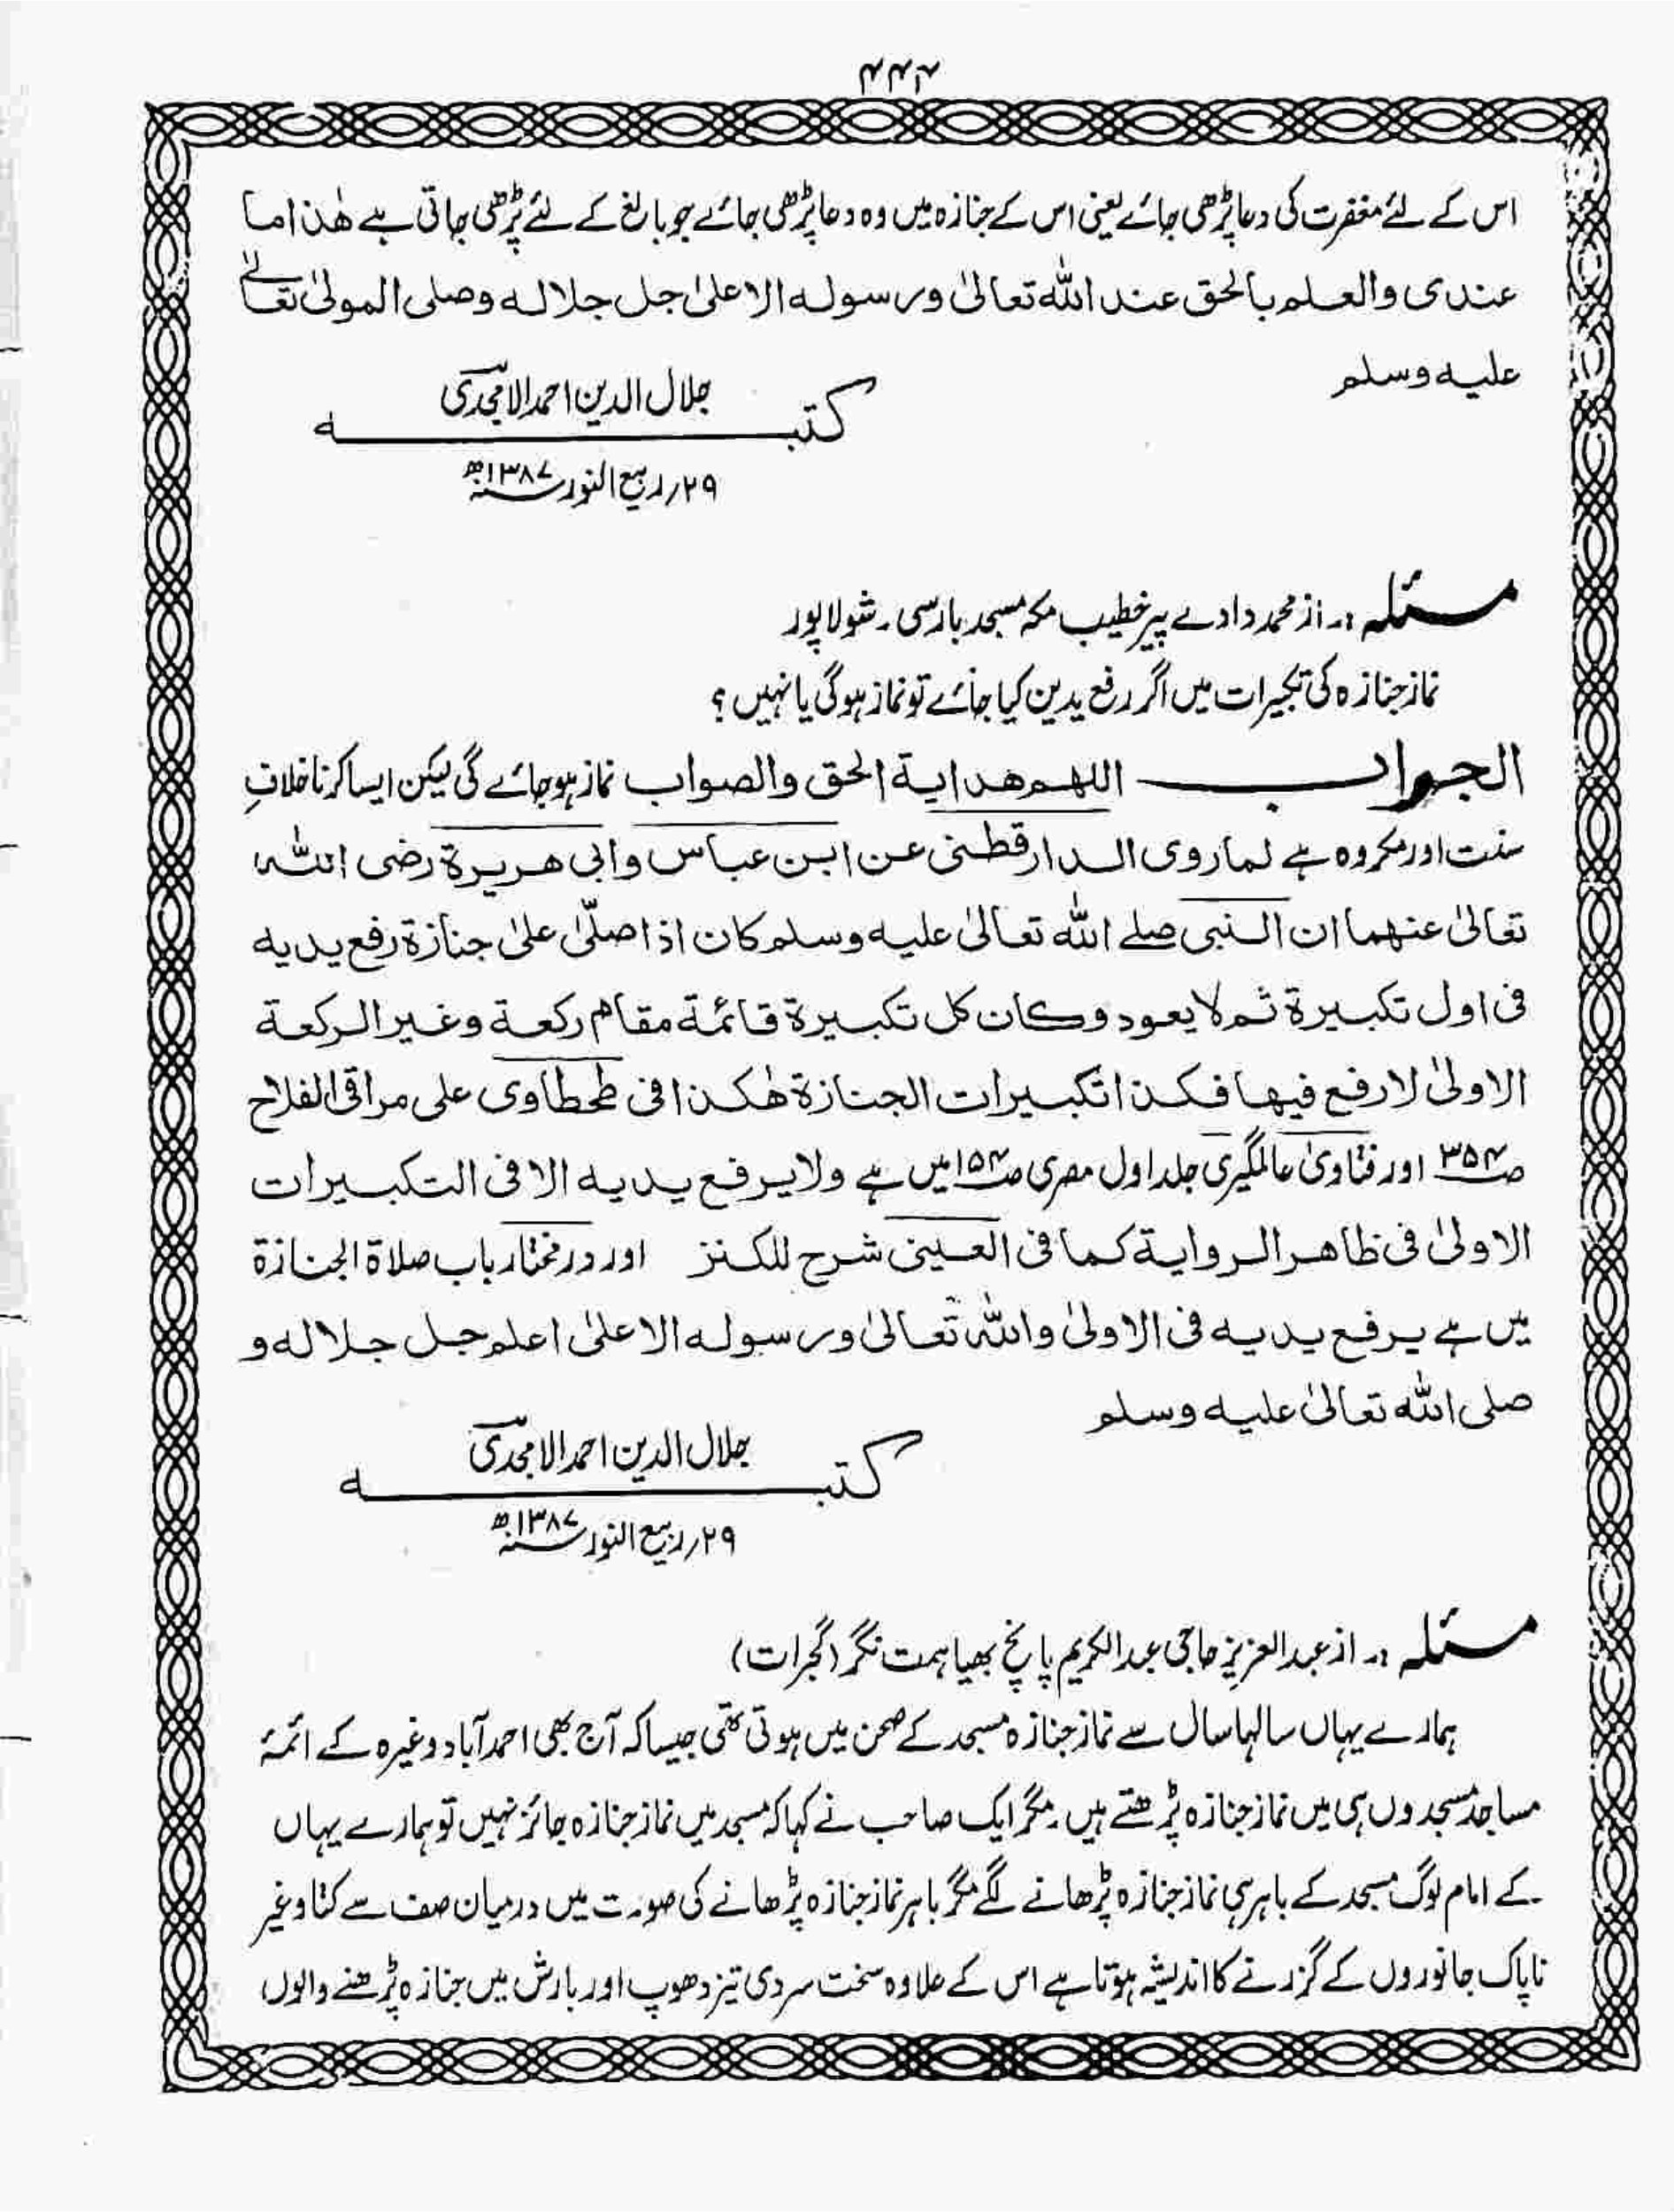 ۴۴۲
اس کے لئے مغفرت کی دعا پڑھی جائے یعنی اس کے جنازہ میں وہ دعا پڑھی جائے جو بالغ کے لئے پڑھی جاتی ہے ھٰذا ما
عندی والعلم بالحق عند اللہ تعالیٰ ورسولہ الاعلیٰ جل جلالہ وصلی المولیٰ تعالےٰ
علیہ وسلم
جلال الدین احمد الامجدی
کتبہ
۲۹؍ ربیع النور سنہ ۱۳۸۷ھ
مسئلہ :۔ از محمد دادے پیر خطیب مکہ مسجد بارسی ۔ شولا پور
نماز جنازہ کی تکبیرات میں اگر رفع یدین کیا جائے تو نماز ہوگی یا نہیں ؟
الجواب ــــــ اللھم ھدایۃ الحق والصواب نماز ہو جائے گی لیکن ایسا کرنا خلافِ
سنت اور مکروہ ہے لما روی الدارقطنی عن ابن عباس وابی ھریرۃ رضی اللہ
تعالیٰ عنھما ان النبی صلے اللہ تعالیٰ علیہ وسلم کان اذا صلّیٰ علیٰ جنازۃ رفع یدیہ
فی اول تکبیرۃ ثم لا یعود وکان کل تکبیرۃ قائمۃ مقام رکعۃ وغیر الرکعۃ
الاولیٰ لا رفع فیھا فکذا تکبیرات الجنازۃ ھٰکذا فی طحطاوی علی مراقی الفلاح
صـ ۳۵۴ اور فتاویٰ عالمگیری جلد اول مصری صـ ۱۵۴ میں ہے ولا یرفع یدیہ الا فی التکبیرات
الاولیٰ فی ظاھر الروایۃ کما فی العینی شرح للکنز اور درمختار باب صلاۃ الجنازۃ
میں ہے یرفع یدیہ فی الاولیٰ واللہ تعالیٰ ورسولہ الاعلیٰ اعلم جل جلالہ و
صلی اللہ تعالیٰ علیہ وسلم
جلال الدین احمد الامجدی
کتبہ
۲۹؍ ربیع النور سنہ ۱۳۸۷ھ
مسئلہ :۔ از عبدالعزیز حاجی عبدالکریم پانچ بھیا ہمت نگر (گجرات)
ہمارے یہاں سالہا سال سے نماز جنازہ مسجد کے صحن میں ہوتی تھی جیسا کہ آج بھی احمد آباد وغیرہ کے ائمۂ
مساجد مسجدوں ہی میں نماز جنازہ پڑھتے ہیں ۔ مگر ایک صاحب نے کہا کہ مسجد میں نماز جنازہ جائز نہیں تو ہمارے یہاں
کے امام لوگ مسجد کے باہر ہی نماز جنازہ پڑھانے لگے مگر باہر نماز جنازہ پڑھانے کی صورت میں درمیان صف سے کتا وغیر
ناپاک جانوروں کے گزرنے کا اندیشہ ہوتا ہے اس کے علاوہ سخت سردی تیز دھوپ اور بارش میں جنازہ پڑھنے والوں